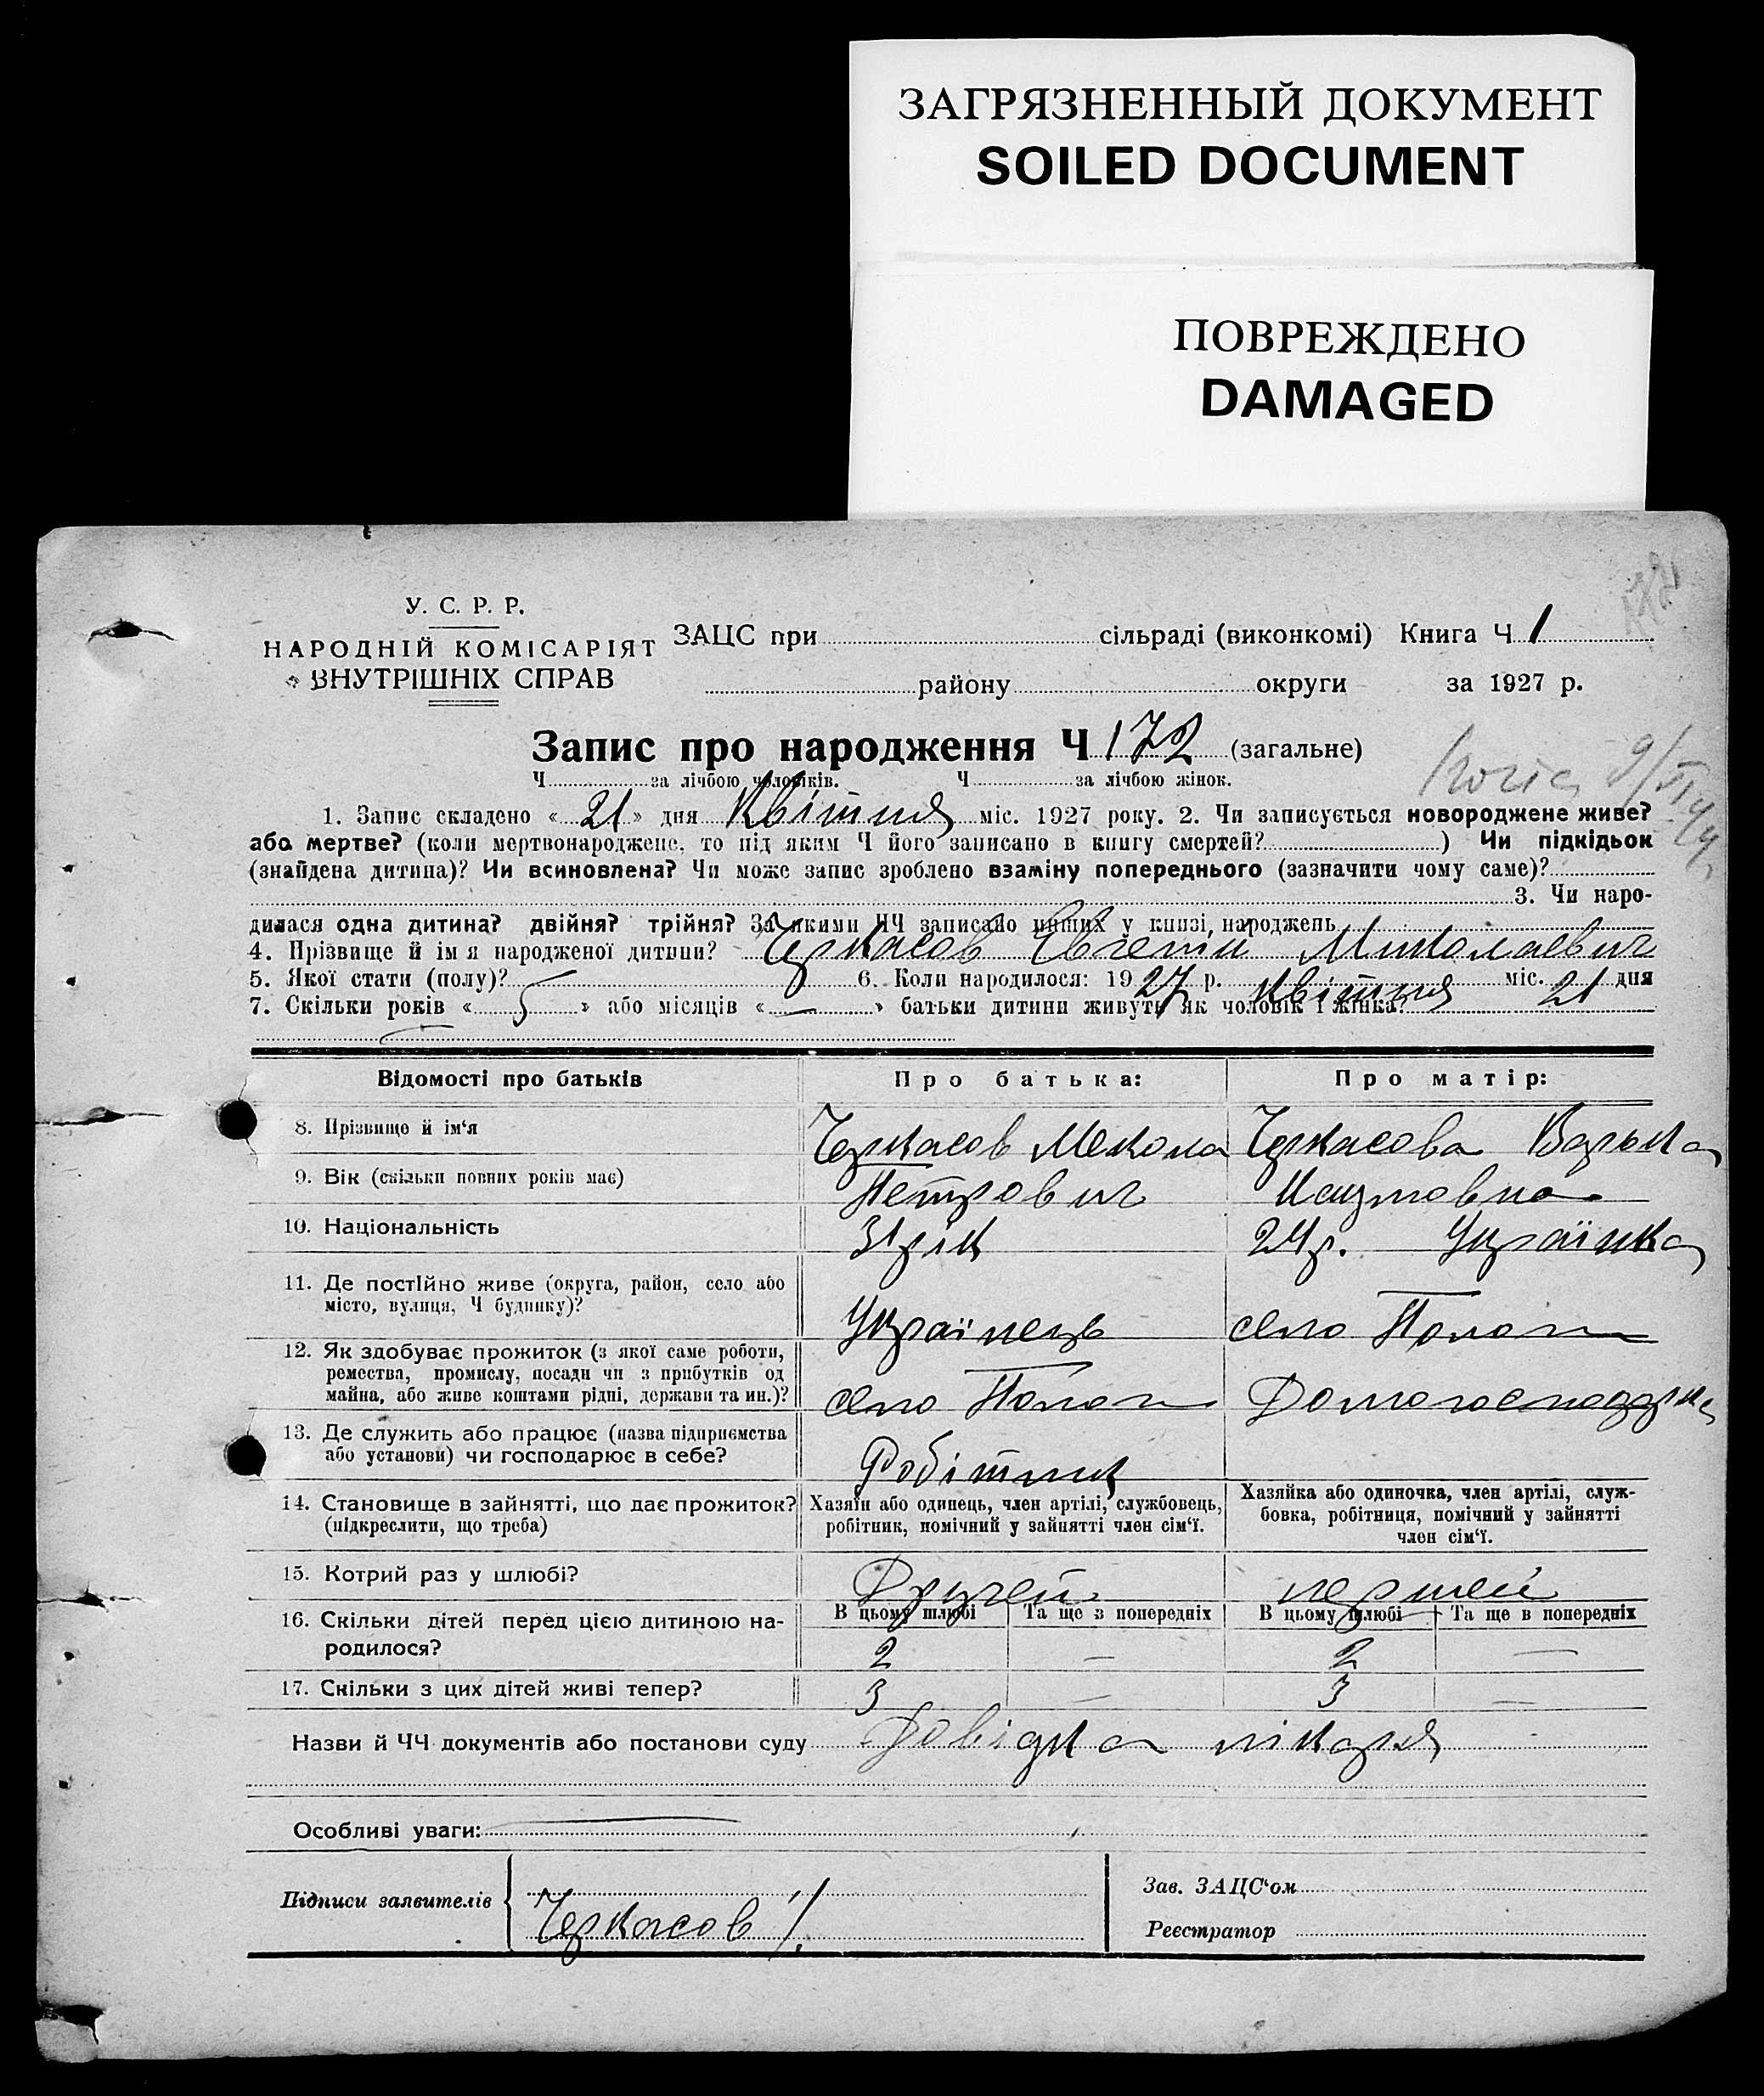 ЗАГРЯЗНЕННЫЙ ДОКУМЕНТ
SOILED DOCUMENT
ПОВРЕЖДЕНО
DAMAGED
172
У. С. Р. Р.
НАРОДНІЙ КОМІСАРІЯТ
ВНУТРІШНІХ СПРАВ
ЗАЦС при сільраді (виконкомі) Книга Ч 1
району округи за 1927 р.
Запис про народження Ч 172 (загальне)
Ч за лічбою чоловіків. Ч за лічбою жінок.
1. Запис складено « 21 » дня Квітня міс. 1927 року. 2. Чи записується новороджене живе?
або мертве? (коли мертвонароджене, то під яким Ч його записано в книгу смертей? ) Чи підкідьок
(знайдена дитина)? Чи всиновлена? Чи може запис зроблено взаміну попереднього (зазначити чому саме)?
3. Чи наро-
дилася одна дитина? двійня? трійня? За якими ЧЧ записано инших у книзі народжень
4. Прізвище й ім я народженої дитини? Черкасов Євгени Миколаевич
5. Якої стати (полу)? 6. Коли народилося: 1927 р. Квітня міс. 21 дня
7. Скільки років « 5 » або місяців « — » батьки дитини живуть як чоловік і жінка?
Відомості про батьків Про батька: Про матір:
8. Прізвище й ім‘я Черкасов Мекола Черкасова Варька
9. Вік (скільки повних років має) Петрович Наумовна
10. Національність 31 рік 24 р. Українка
11. Де постійно живе (округа, район, село або
місто, вулиця, Ч будинку)? Українець село Пологи
12. Як здобуває прожиток (з якої саме роботи,
ремества, промислу, посади чи з прибутків од
майна, або живе коштами рідні, держави та ин.)? село Пологи Домогосподарка
13. Де служить або працює (назва підприємства
або установи) чи господарює в себе? Робітник
14. Становище в зайнятті, що дає прожиток?
(підкреслити, що треба)
Хазяїн або одинець, член артілі, службовець,
робітник, помічний у зайнятті член сім‘ї.
Хазяйка або одиночка, член артілі, служ-
бовка, робітниця, помічний у зайнятті
член сім‘ї.
15. Котрий раз у шлюбі? Другей першей
16. Скільки дітей перед цією дитиною на-
родилося?
В цьому шлюбі Та ще в попередніх В цьому шлюбі Та ще в попередніх
2 — 2 —
17. Скільки з цих дітей живі тепер? 3 — 3 —
Назви й ЧЧ документів або постанови суду Довідка лікаря
Особливі уваги:
Підписи заявителів Черкасов
Зав. ЗАЦС‘ом
Реєстратор